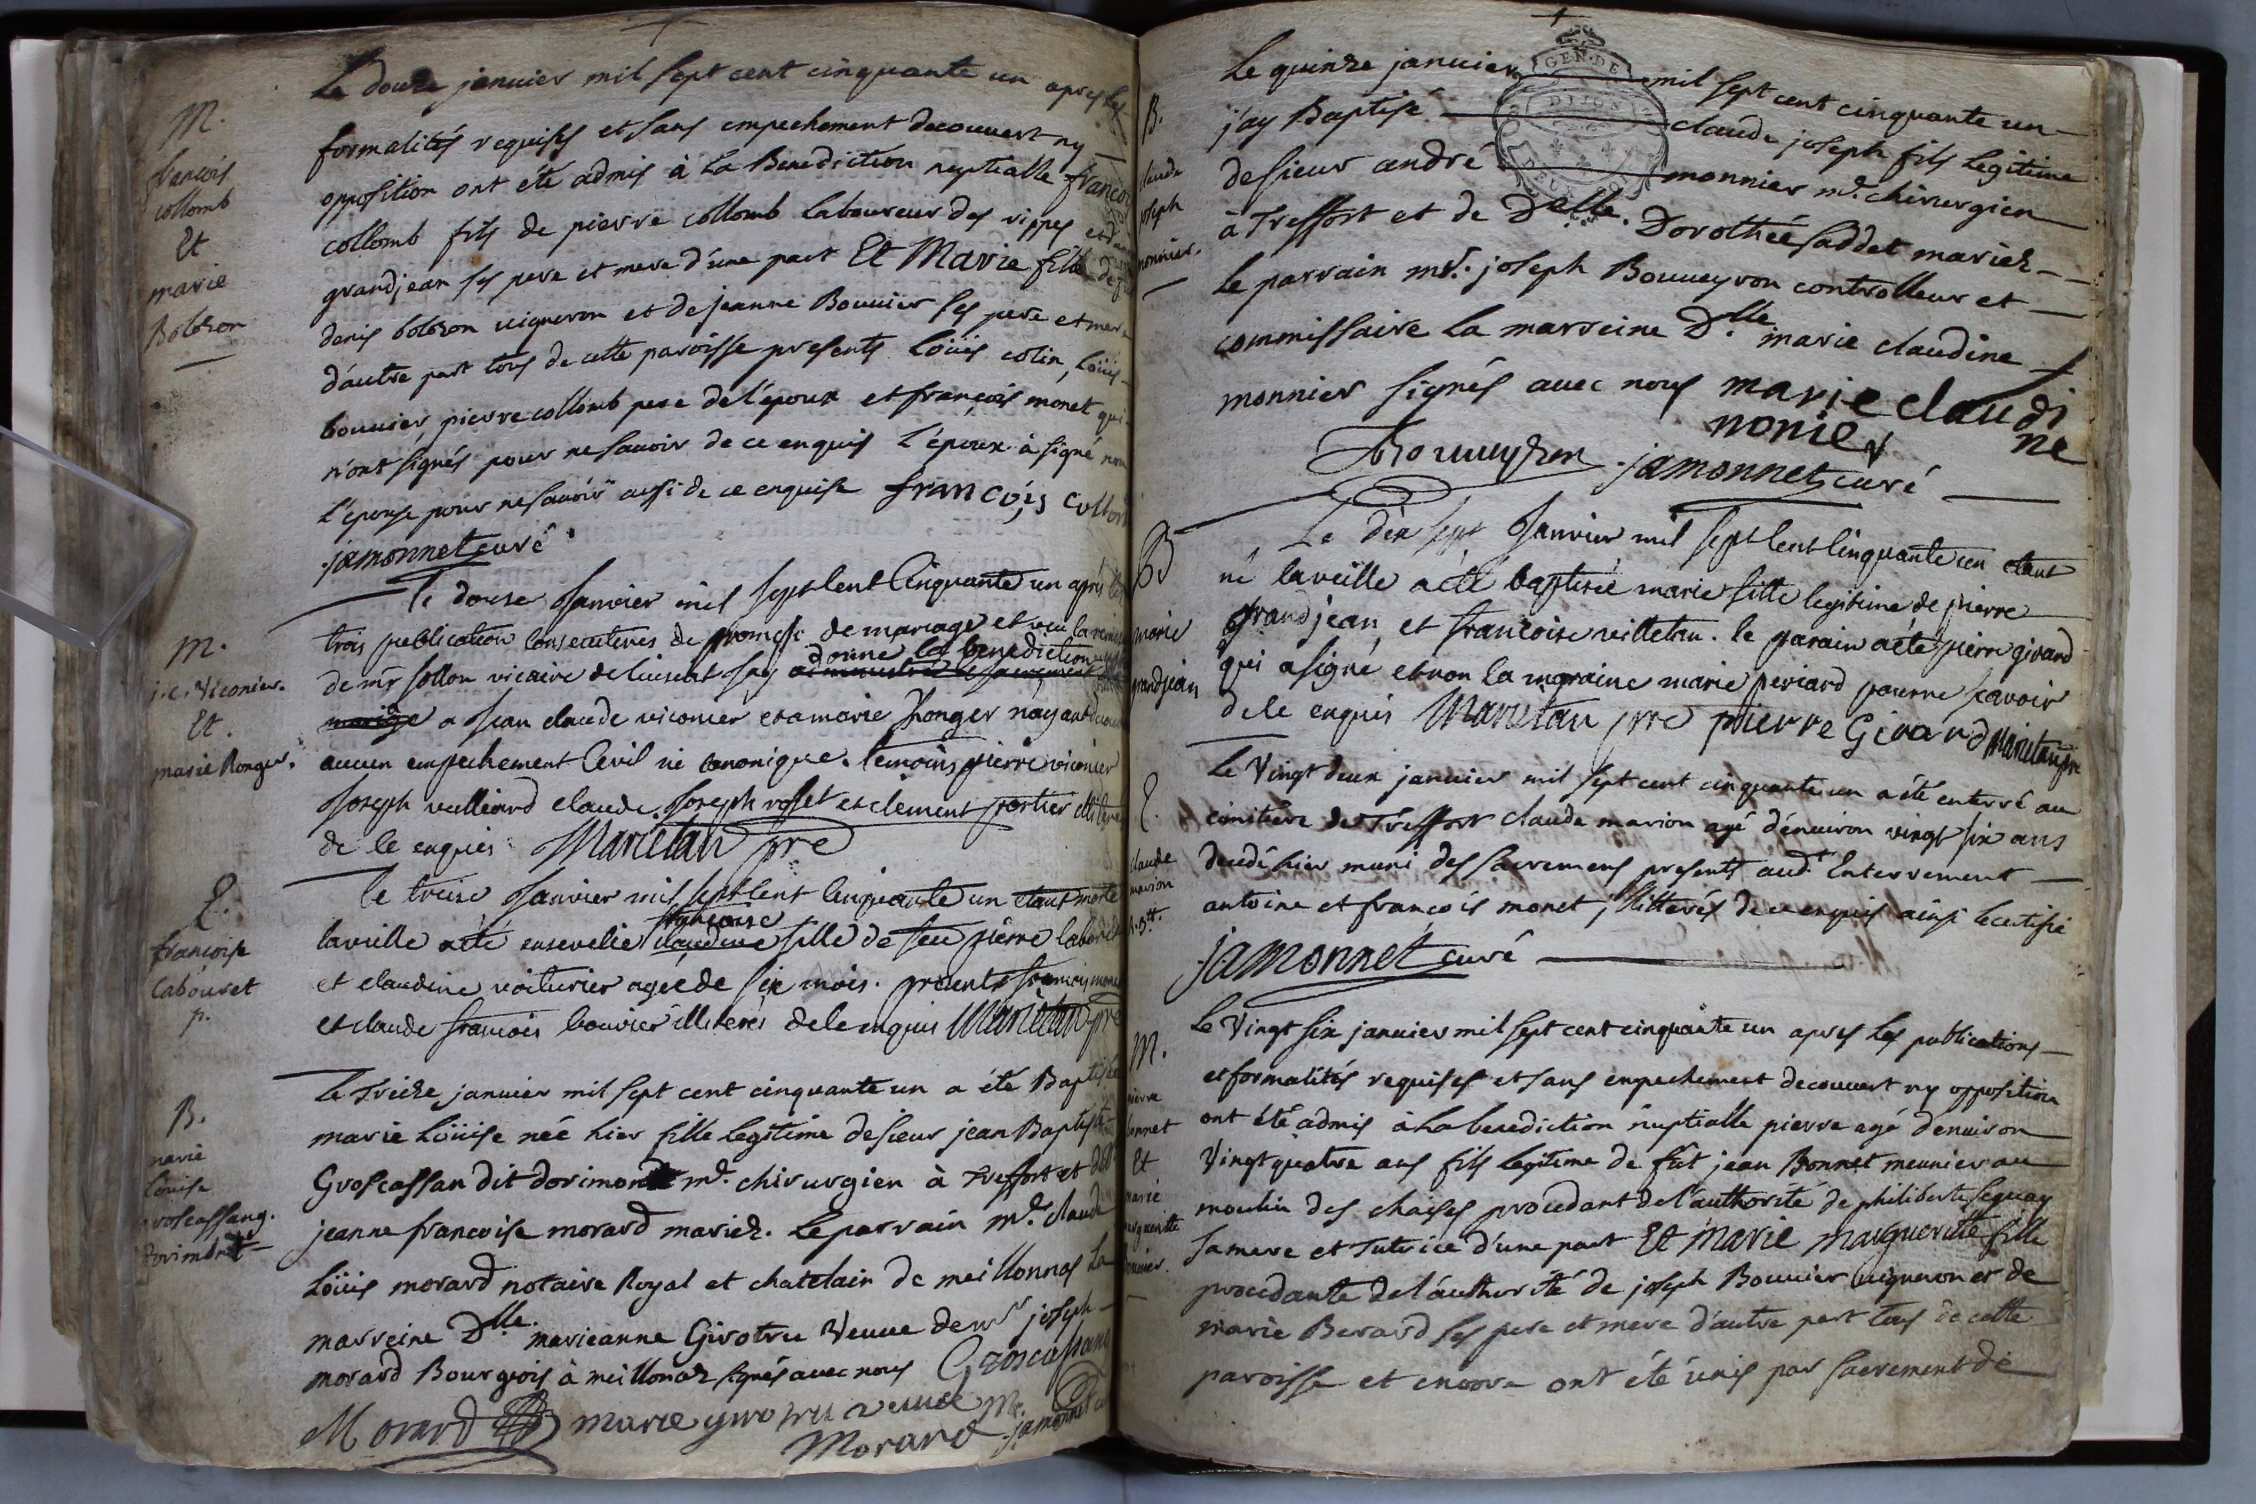 M.
françois
collomb
Et
marie
Bolozon
Le douze janvier mil sept cent cinquante un apres les
formalités requises et sans empechement decouvert ny
opposition ont été admis à la Benediction nuptialle françois
collomb fils de pierre collomb laboureur des rippes et
grandjean ses pere et mere d'une part Et Marie fille de
denis bolozon vigneron et de jeanne Bouvier ses pere et mere
d'autre part tous de cette paroisse presents Loüis colin, Loüis
bouvier pierre collomb pere de l'époux et françois monet qui
n'ont signés pour ne savoir de ce enquis l'époux à signé non
l'épouse pour ne savoir aussi de ce enquise françois collom
jamonnet curé
M.
j.c. viconier.
Et.
marie Ronger.
le douze Janvier mil sept Cent Cinquante un après les
trois publication consecutives de promesse de mariage et veu la remise
de mr sollon vicaire de cuiseat jay administré le sacrement donné la benediction
mariage a jean claude viconier et a marie Ronger nayant
aucun empechement Civil ni canonique. temoins pierre viconier
Joseph vulliard claude Joseph rosset et clement portier
de ce enquis Marietan pre
E.
françoise
Labouret
p.
le treise Janvier mil sept Cent Cinquante un etant morte
la veille a été ensevelie claudine françoise fille de feu pierre labouret
et claudine voiturier agée de six mois. presents francois monet
et claude francois bouvier illiterés de ce enquis Marietan pre
B.
marie
Loüise
groscassang.
dorimont
Le Treize janvier mil sept cent cinquante un a été Baptisée
marie Loüise née hier fille legitime de sieur jean Baptiste
Groscassan dit dorimond md. chirurgien à Treffort et dlle
jeanne francoise morard mariez. Le parrain mr. claude
Loüis morard notaire Royal et chatelain de meillonnas La
marreine Dlle. marieanne Girotru Veuve de mr joseph
morard Bourgeois à meillonaz signés avec nous Groscassand
Morard marie girotru veuve
Morard jamonnet
B.
claude
joseph
monnier.
Le quinze janvier mil sept cent cinquante un
GEN. DE DIJON
DEUX
j'ay Baptisé claude joseph fils legitime
de sieur andré monnier md. chirurgien
à Treffort et de Delle. Dorothée saddet mariez
Le parrain mr. joseph Bouveyron controlleur et
commissaire La marreine Dlle. marie claudine
monnier signés avec nous marie claudi
ne
monier
Bouveyron jamonnet curé
B
marie
grandjean
Le dix sept Janvier mil sept Cent Cinquante un etant
né la veille a été baptisée marie fille legitime de pierre
grandjean et francoise villetan. le parain a été pierre girard
qui a signé et non la maraine marie periard pour ne scavoir
de ce enquis Marietan pre pierre Girard Marietan pre
E.
claude
marion
Le Vingt deux janvier mil sept cent cinquante un a été enterré au
cimitiere de Treffort claude marion agé d'environ vingt six ans
decedé hier muni des sacremens presents aud. Enterrement
antoine et françois monet, illitterés de ce enquis ainsi le certifie
jamonnet curé
M.
pierre
bonnet
Et
marie
marguerite
bouvier.
Le Vingt six janvier mil sept cent cinquante un apres les publications
et formalités requises et sans empechement decouvert ny opposition
ont été admis à la benediction nuptialle pierre agé d'environ
Vingt quatre ans fils legitime de fût jean Bonnet meunier au
moulin des chaises procedant de l'authorité de philiberte seguay
sa mere et Tutrice d'une part Et Marie Marguerite fille
procedante de l'authorité de joseph Bouvier vigneron et de
marie Berard ses pere et mere d'autre part tous de cette
paroisse et encore ont été unis par sacrement de